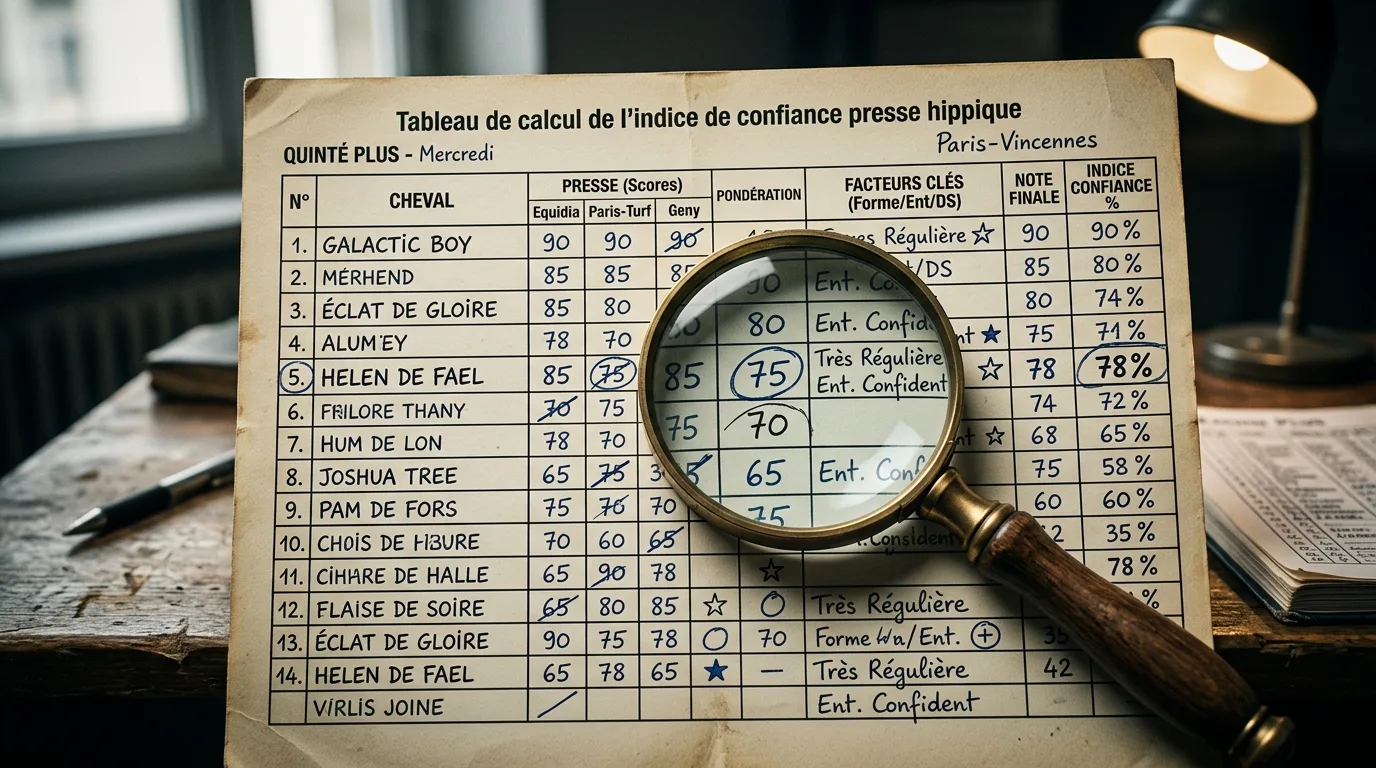 Tableau de calcul de l'indice de confiance presse hippique
QUINTÉ PLUS - Mercredi
Paris-Vincennes
N° CHEVAL PRESSE (Scores) PONDÉRATION FACTEURS CLÉS (Forme/Ent/DS) NOTE FINALE INDICE CONFIANCE %
Equidia Paris-Turf Geny
1. GALACTIC BOY 90 90 90 Régulière ☆ 90 90%
2. MÉRHEND 85 85 90 Ent. /DS 85 80%
3. ÉCLAT DE GLOIRE 85 80 80 Ent. Confid 80 74%
4. ALUM'EY 78 70 ★ 75 71%
5. HELEN DE FAEL 85 75 85 75 Très Régulière Ent. Confident ☆ 78 78%
6. THANY 70 75 75 70 74 72%
7. HUM DE LON 78 70 ☆ 68 65%
8. JOSHUA TREE 65 75 65 Ent. Conf 75 58%
9. PAM DE FORS 75 70 70 75 60 60%
10. CHOIS DE 70 60 65 .Considént 35%
11. DE HALLE 65 90 78 ☆ 78%
12. FLAISE DE SOIRE 65 80 85 ☆ Très Régulière
13. ÉCLAT DE GLOIRE 90 75 78 70 Forme /Ent. 35
14. HELEN DE FAEL 65 78 65 ★ — Très Régulière 42
VIRLIS JOINE Ent. Confident